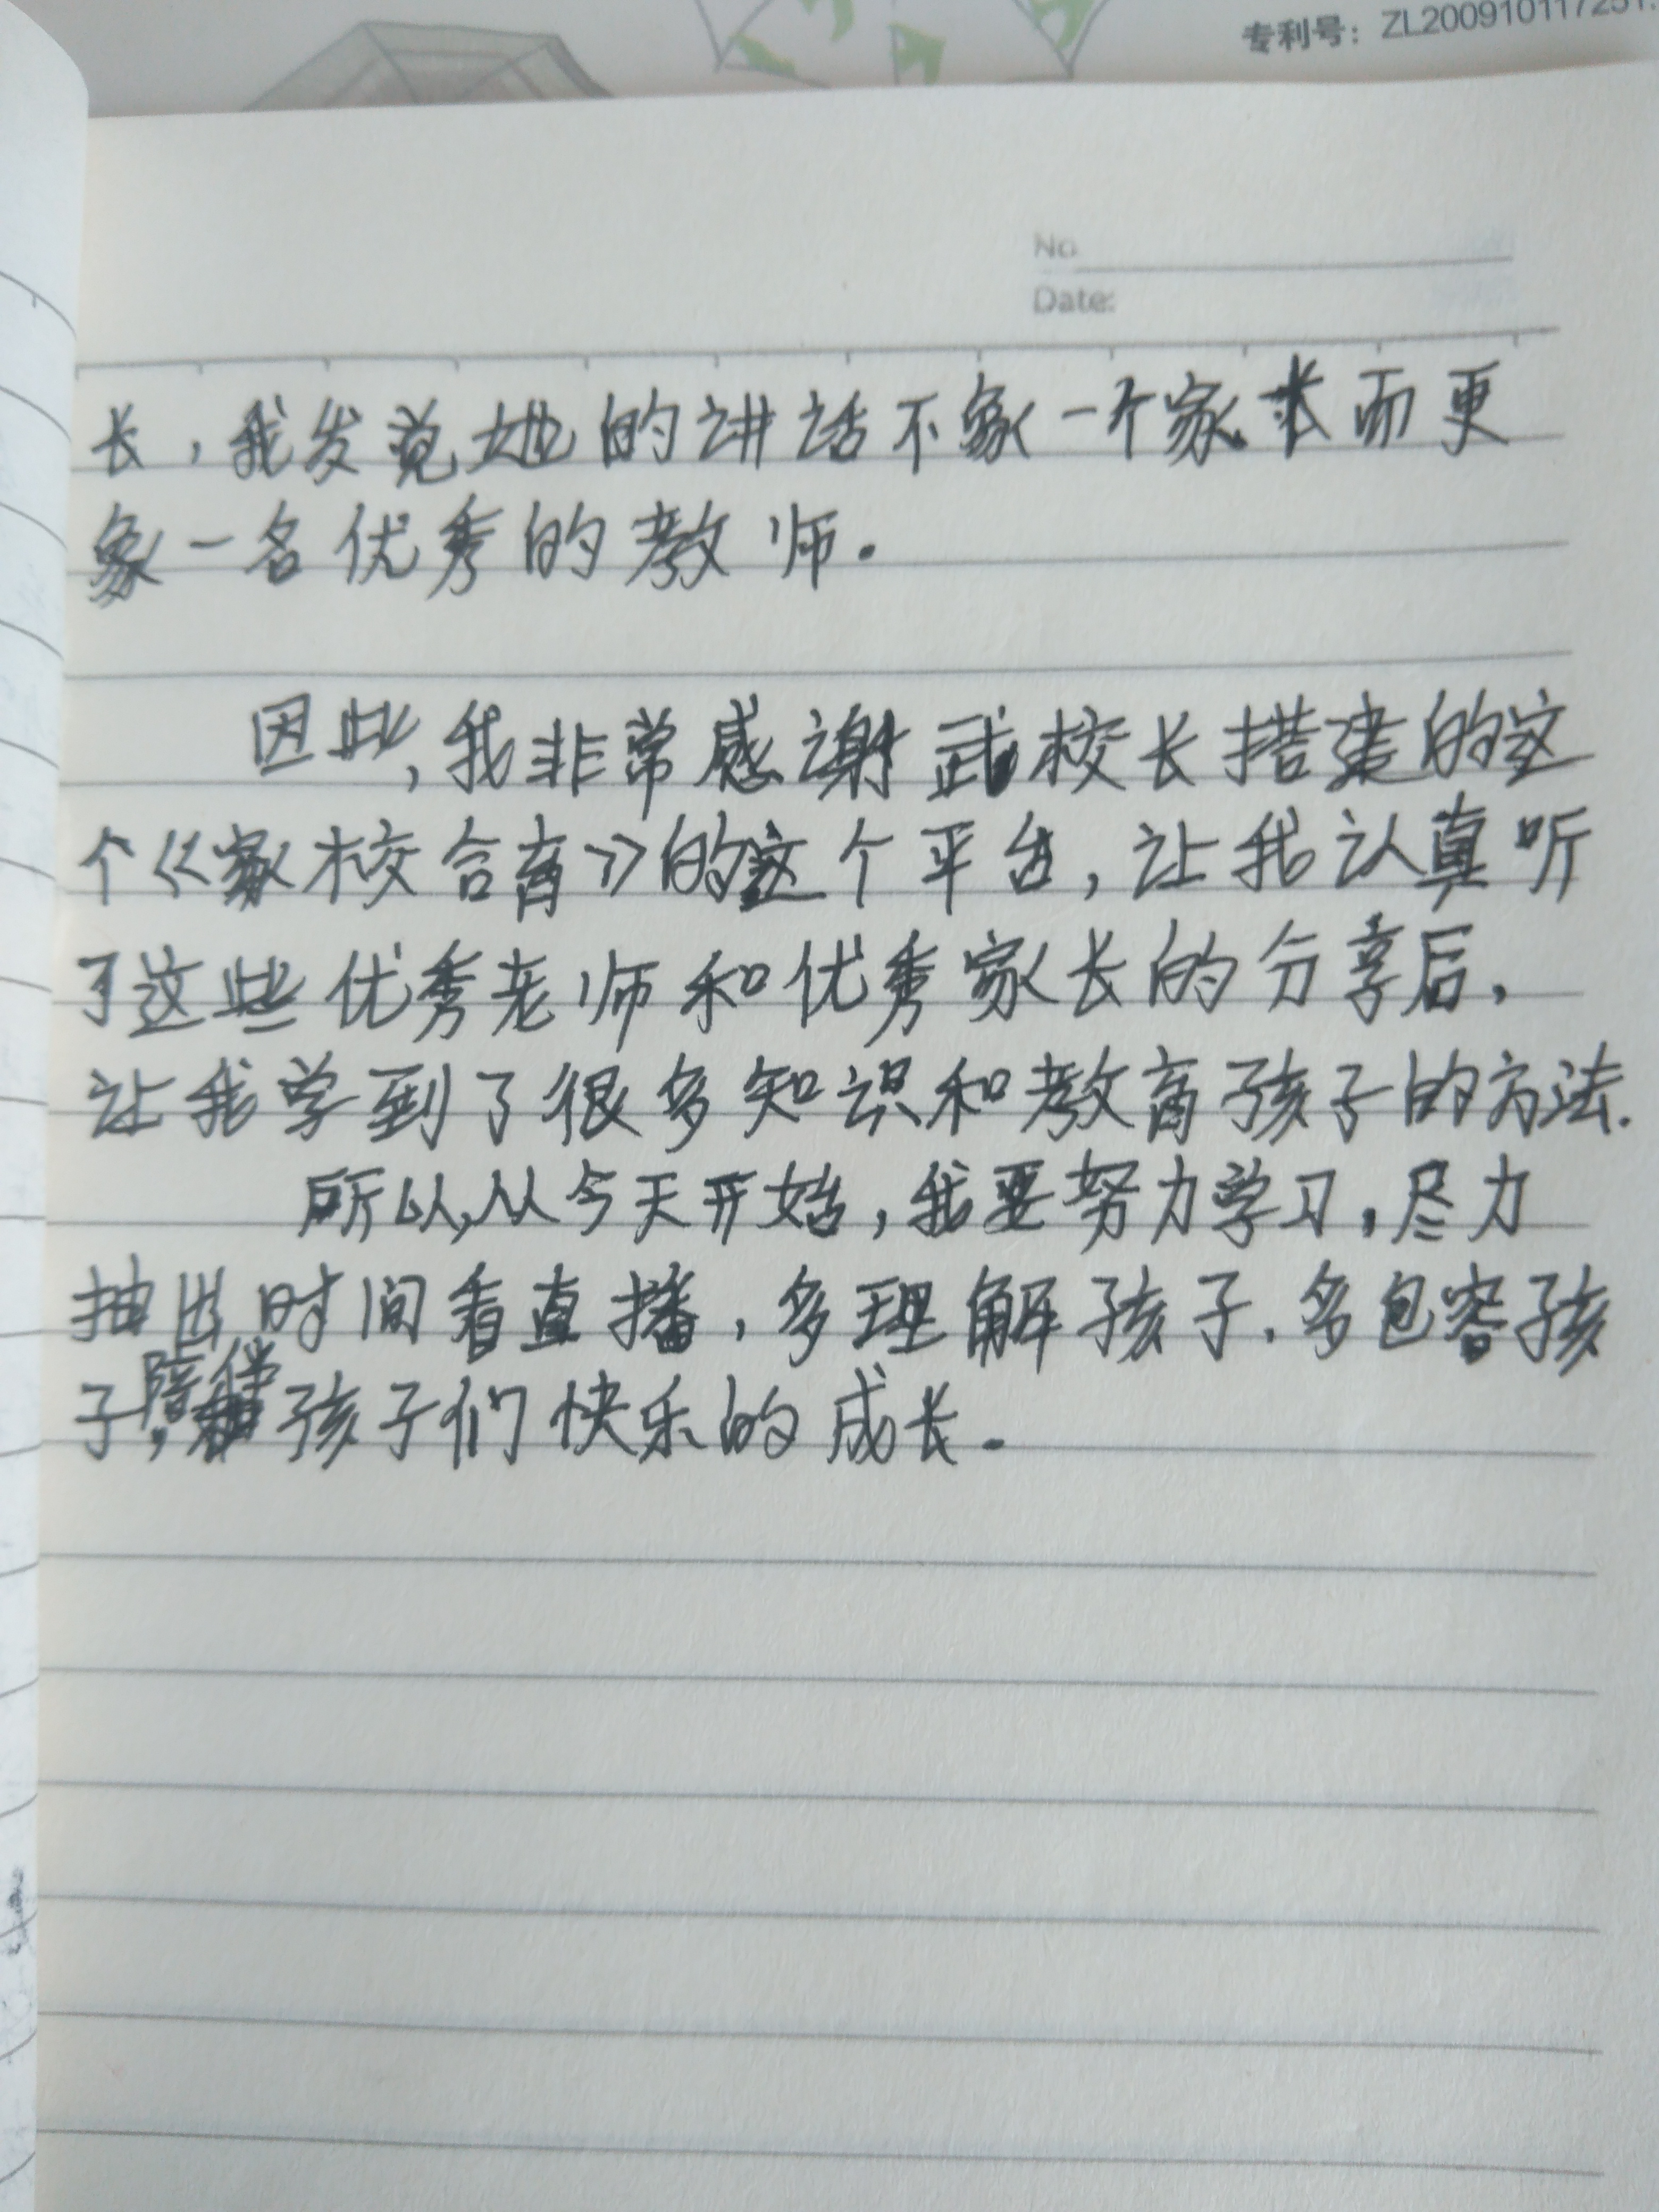 专利号：ZL200910117251.
No
Date:
长，我发觉她的讲话不象一个家长而更
象一名优秀的教师.
因此，我非常感谢武校长搭建的这
个《家校合育》的这个平台，让我认真听
了这些优秀老师和优秀家长的分享后，
让我学到了很多知识和教育孩子的方法.
所以，从今天开始，我要努力学习，尽力
抽出时间看直播，多理解孩子.多包容孩
子，陪伴孩子们快乐的成长.